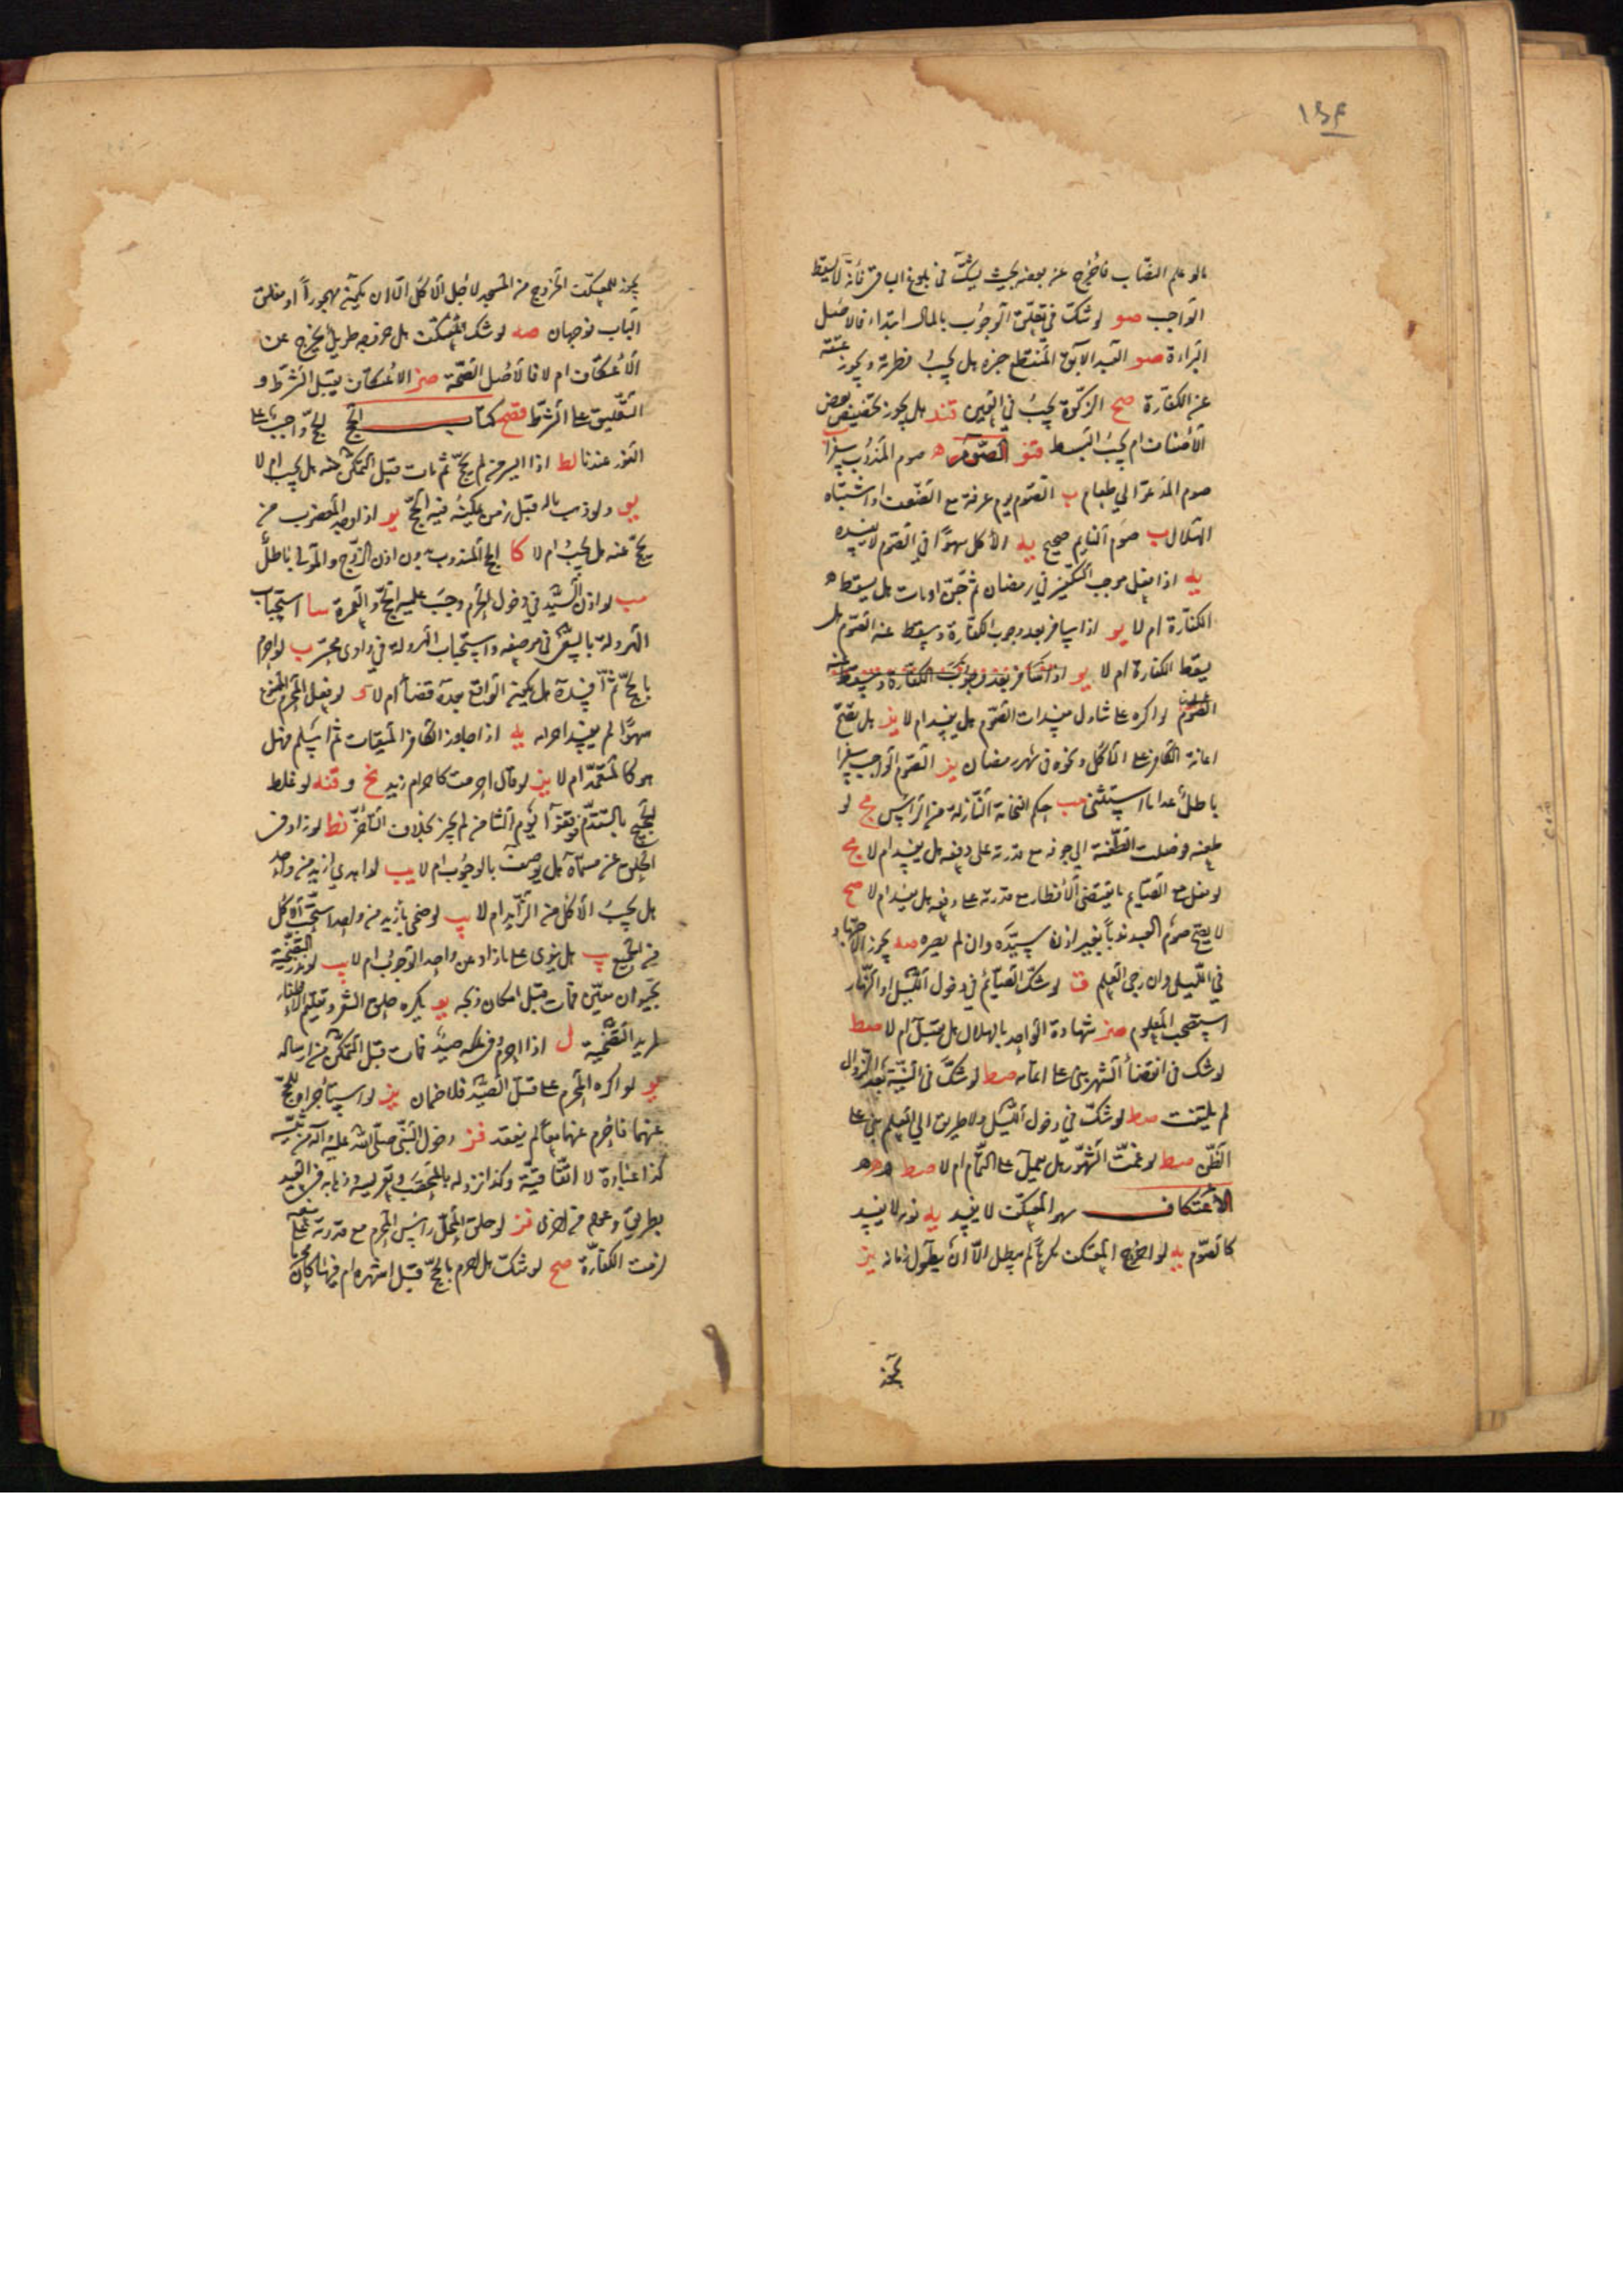 ۱۵۴
مالو علم النصاب فاخرج عن بعضه بحيث يشك في بلوغ الباقي فانه لا يسقط
الواجب صو لو شك في تعلق الوجوب بالمال ابتداء فالاصل
البراءة صو العبد الآبق المنقطع خبره هل يجب فطرته ويجوز عتقه
عن الكفارة صح الزكوة يجب في العين قند هل يجوز تخفيض بعض
الأصناف ام يجب البسط قنو الصوم صوم المندوب سفرا
صوم المدعو الي طعام ب الصوم يوم عرفة مع الضعف او اشتباه
الهلال ب صوم النايم صحيح يه الأكل سهوا في الصوم لا يفسده
يه اذا فعل موجب التكفير في رمضان ثم جن او مات هل يسقط
الكفارة ام لا يو اذا سافر بعد وجوب الكفارة ويسقط عنه الصوم هل
يسقط الكفارة ام لا يو اذا سافر بعد وجوب الكفارة ويسقط عنه
الصوم لو اكره على تناول مفسدات الصوم هل يفسد ام لا يز هل تصح
اعانة الكافر على الأكل ونحوه في شهر رمضان يز الصوم الواجب سفرا
باطل عدا ما استثني مب حكم النخامة النازلة من الرأس مج لو
طعنه فوصلت الطعنة الي جوفه مع قدرته على دفعه هل يفسد ام لا مج
لو فعل مع الصايم ما يقتضي الأفطار مع قدرته على دفعه هل يفسد ام لا صح
لا يصح صوم العبد ندبا بغير اذن سيده وان لم يضره صه يجوز الاجتهاد
في الليلي وان رجي العلم ق لو شك الصائم في دخول الليل او النهار
استصحب المعلوم صز شهادة الواحد بالهلال هل يقبل ام لا صط
لو شك في انقضأ الشهر بنى على اتمامه صط لو شك في النية بعد الزوال
لم يلتفت صط لو شك في دخول الليل ولا طريق الي العلم بني على
الظن صط لو غمت الشهور هل يعمل على التمام ام لا صط
الاعتكاف سهو المعتكف لا يفسد يه نومه لا يفسد
كالصوم يه لو اخرج المعتكف كرها لم يبطل الا ان يطول زمانه يز
يجوز
يجوز للمعتكف الخروج من المسجد لأجل الأكل الا ان يكون مهجورا او مغلق
الباب فوجهان صه لو شك المعتكف هل خرج
الأعتكاف ام لا فالأصل الصحة صز الاعتكاف يقبل الشرط و
التعليق على الشرط قفح كتاب الحج الحج واجب على
الفور عندنا لط اذا اليه لم يحج ثم مات قبل التمكن منه هل يجب ام لا
يو ولو ذهب ماله قبل زمن يمكنه فيه الحج يو اذا اوصي المعضوب من
يحج عنه هل يجب ام لا كا الحج المندوب بدون اذن الزوج والمولي باطل
مب لو اذن السيد في دخول الحرم وجب عليه الحج والعمرة سا استحباب
الهرولة بالسعي في موضعه واستحباب الهرولة في وادي محسر ب لو احرم
بالحج ثم افسده هل يكون الواقع بعده قضأ ام لا ى لو فعل المحرم الممنوع
سهوا لم يفسد احرامه يه اذا جاوز الكافر الميقات ثم اسلم فهل
هو كالمتعمد ام لا يز لو قال احرمت كاحرام زيد نح و قنه لو غلط
الحجيج بالتقدم فوقفوا يوم الثامن لم يجز بخلاف التأخر نط لو زاد في
الحلق عن مسماه هل يوصف بالوجوب ام لا يب لو اهدي ازيد من واحد
هل يجب الأكل من الزايد ام لا يب لو ضحى بازيد من واحد استحب الأكل
من الجميع يب هل ينوى على ما زاد عن واحد الوجوب ام لا يب لو نذر التضحية
بحيوان معين فمات قبل امكان ذبحه يو يكره حلق الشعر وتقليم الاظفار
لمريد التضحية ل اذا احرم وفي ملكه صيد فمات قبل التمكن من ارساله
يو لو اكره المحرم على قتل الصيد فلا ضمان يز لو استأجراه للحج
عنهما فاحرم عنهما معا لم ينعقد قز دخول النبي صلى الله عليه وآله من ثنية
كذا عبادة لا اتفاقية وكذا نزوله بالمحصب وتعريسه وذهابه في العيد
بطريق وعوده من اخرى قز لو حلق المحل رأس المحرم مع قدرته على منعه
لزمت الكفارة صح لو شك هل احرم بالحج قبل اشهره ام فيها كان